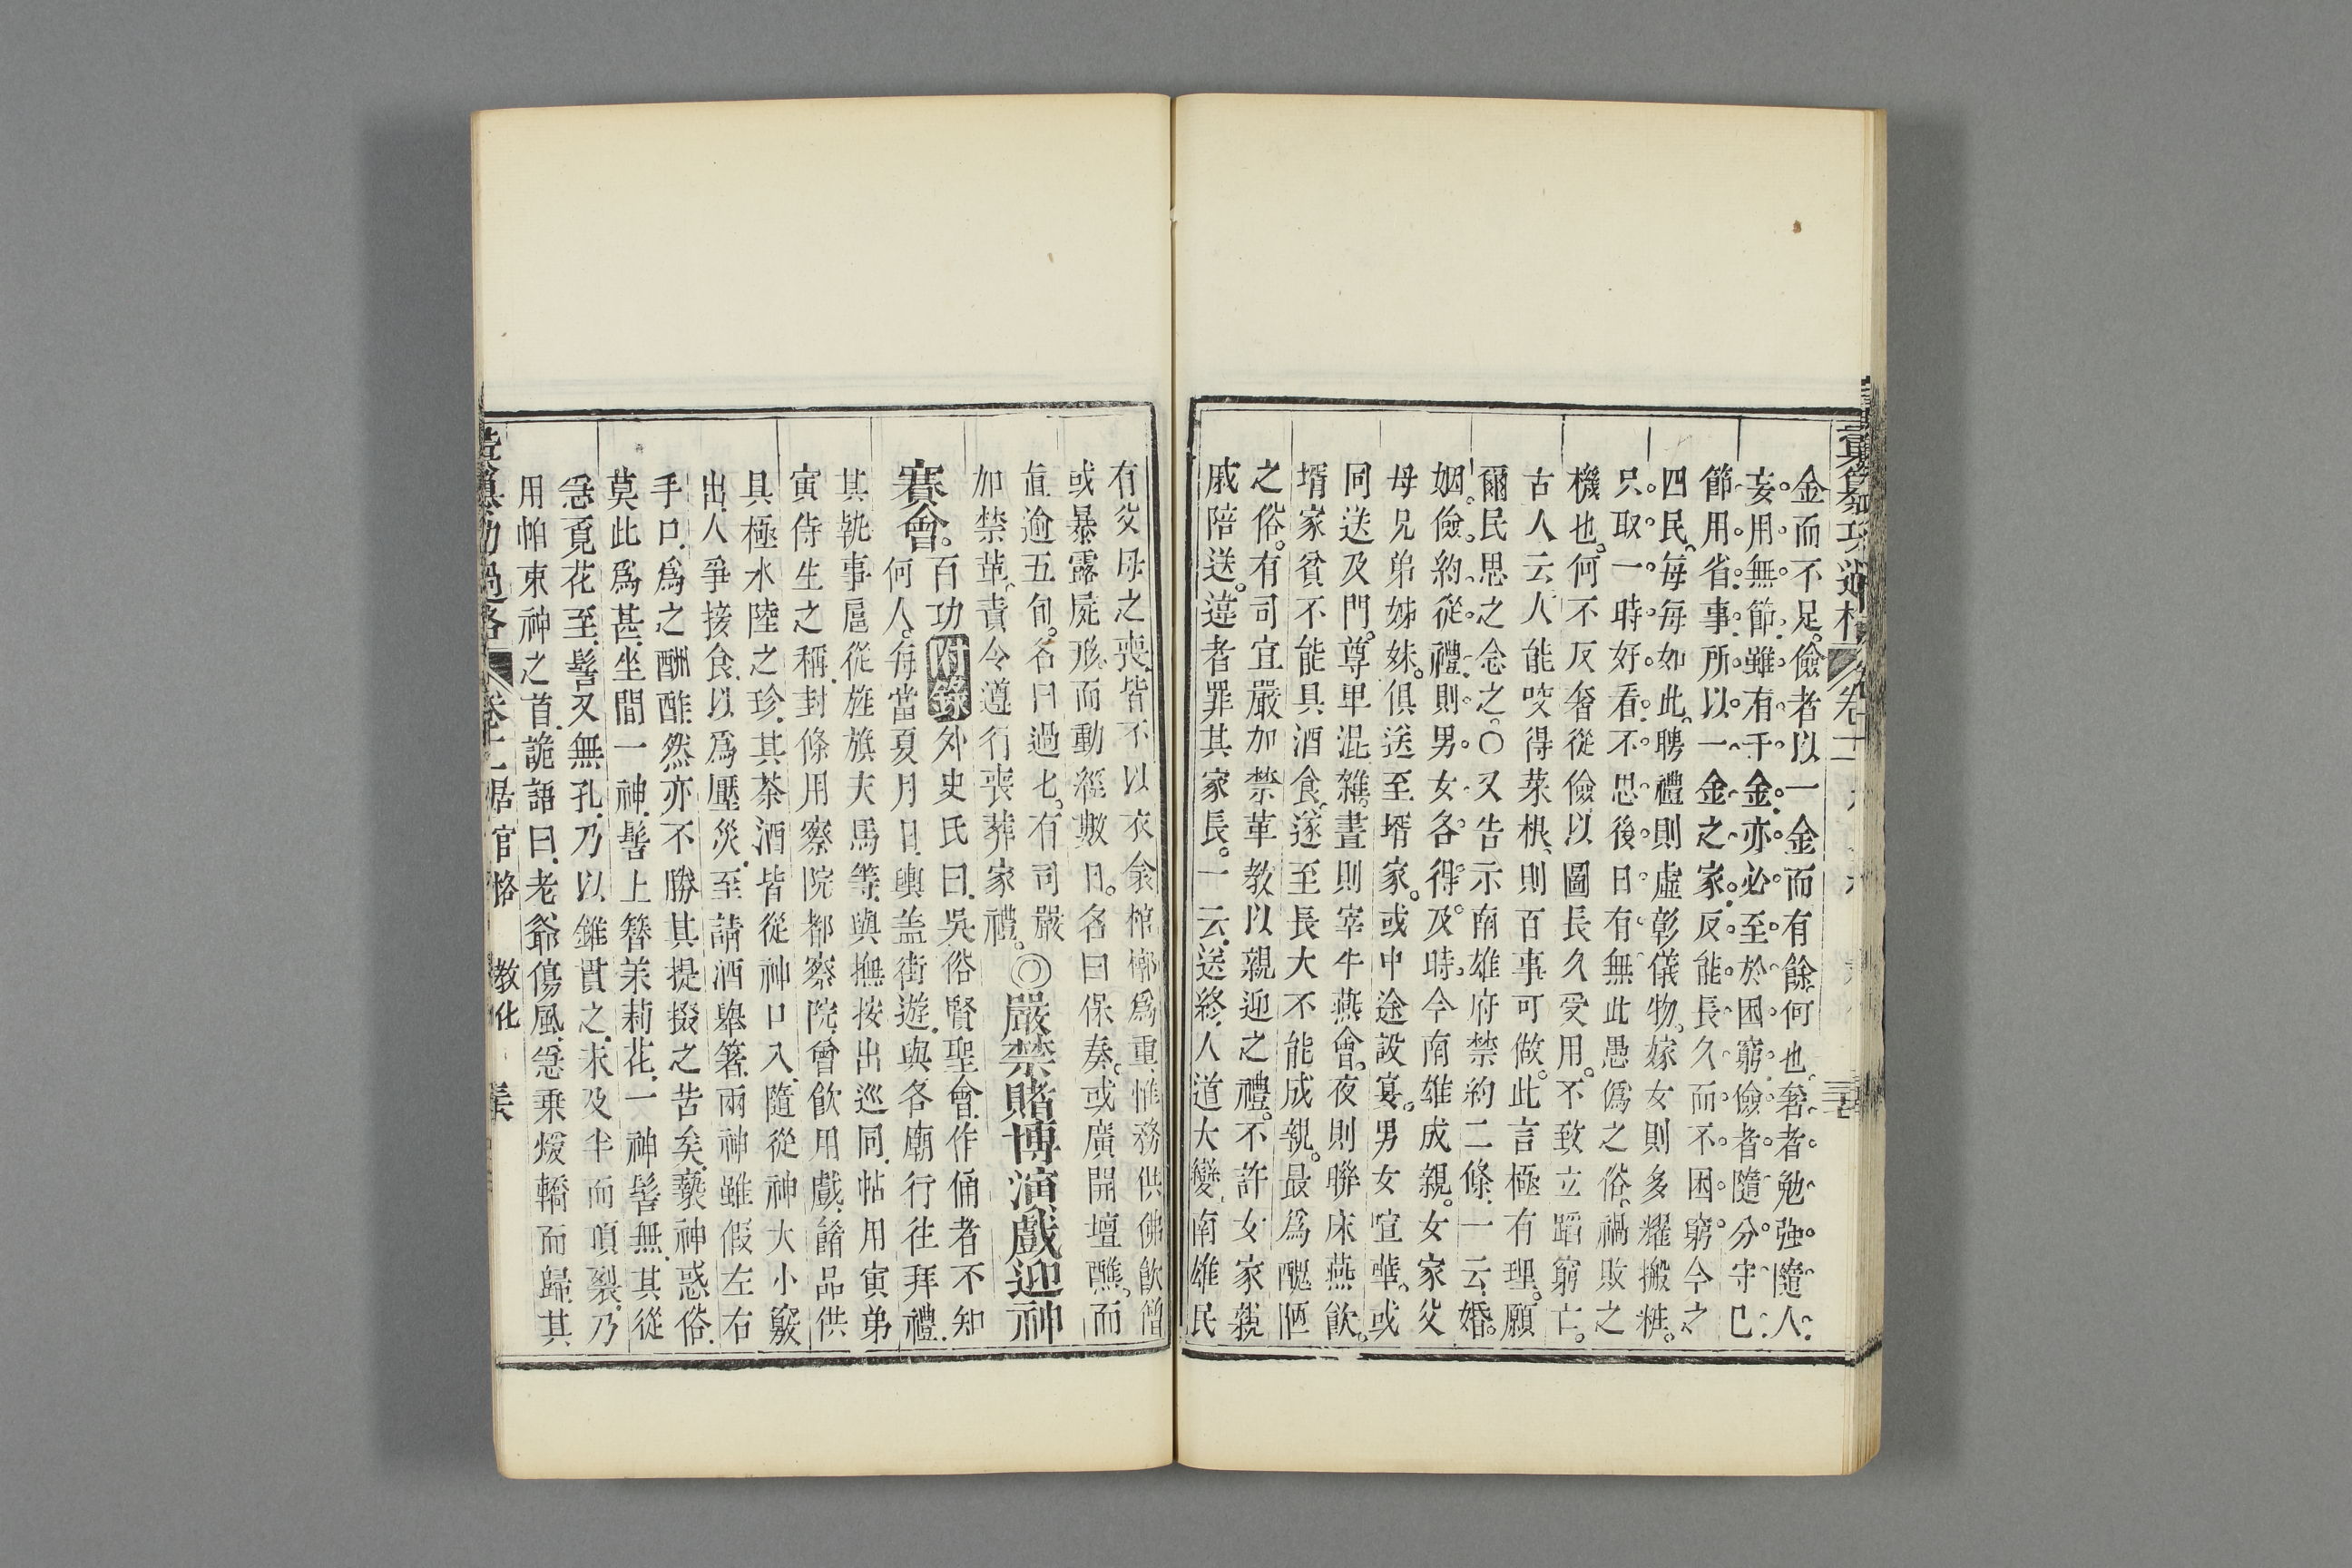 金而不足儉者以一金而有餘何也奢者勉強隨人
妄用無節雖有千金亦必至於困窮儉者隨分守己
節用省事所以一金之家反能長久而不困窮今之
四民每每如此聘禮則虛彰儀物嫁女則多耀搬粧
只取一時好看不思後日有無此愚僞之俗禍敗之
機也何不反奢從儉以圖長久受用不致立蹈窮亡
古人云人能咬得菜根則百事可做此言極有理願
爾民思之念之○又告示南雄府禁約二條一云婚
姻儉約從禮則男女各得及時今南雄成親女家父
母兄弟姊妹俱送至壻家或中途設宴男女喧譁或
同送及門尊卑混雜晝則宰牛燕會夜則聯床燕飲
壻家貧不能具酒食遂至長大不能成親最爲醜陋
之俗有司宜嚴加禁革教以親迎之禮不許女家親
戚陪送違者罪其家長一云送終人道大變南雄民
有父母之喪皆不以衣衾棺槨爲重惟務供佛飮僧
或暴露屍形而動經數日名曰保奏或廣開壇醮而
逾五旬名曰過七有司嚴
加禁革責令遵行喪葬家禮◎嚴禁賭博演戲迎神
賽會百功附錄外史氏曰吳俗賢聖會作俑者不知
何人每當夏月日輿蓋街遊與各廟行往拜禮
其執事扈從旌旗夫馬等與撫按出巡同帖用寅弟
寅侍生之稱封條用察院都察院會飮用戲餚品供
具極水陸之珍其茶酒皆從神口入隨從神大小竅
出人爭接食以爲壓災至請酒舉箸兩神雖假左右
手口爲之酬酢然亦不勝其提掇之苦矣褻神惑俗
莫此爲甚坐間一神髻上簪茉莉花一神髻無其從
急覓花至髻又無孔乃以錐貫之未及半而頂裂乃
用帕束神之首詭語曰老爺傷風急乘煖轎而歸其
卷十二居官格 教化